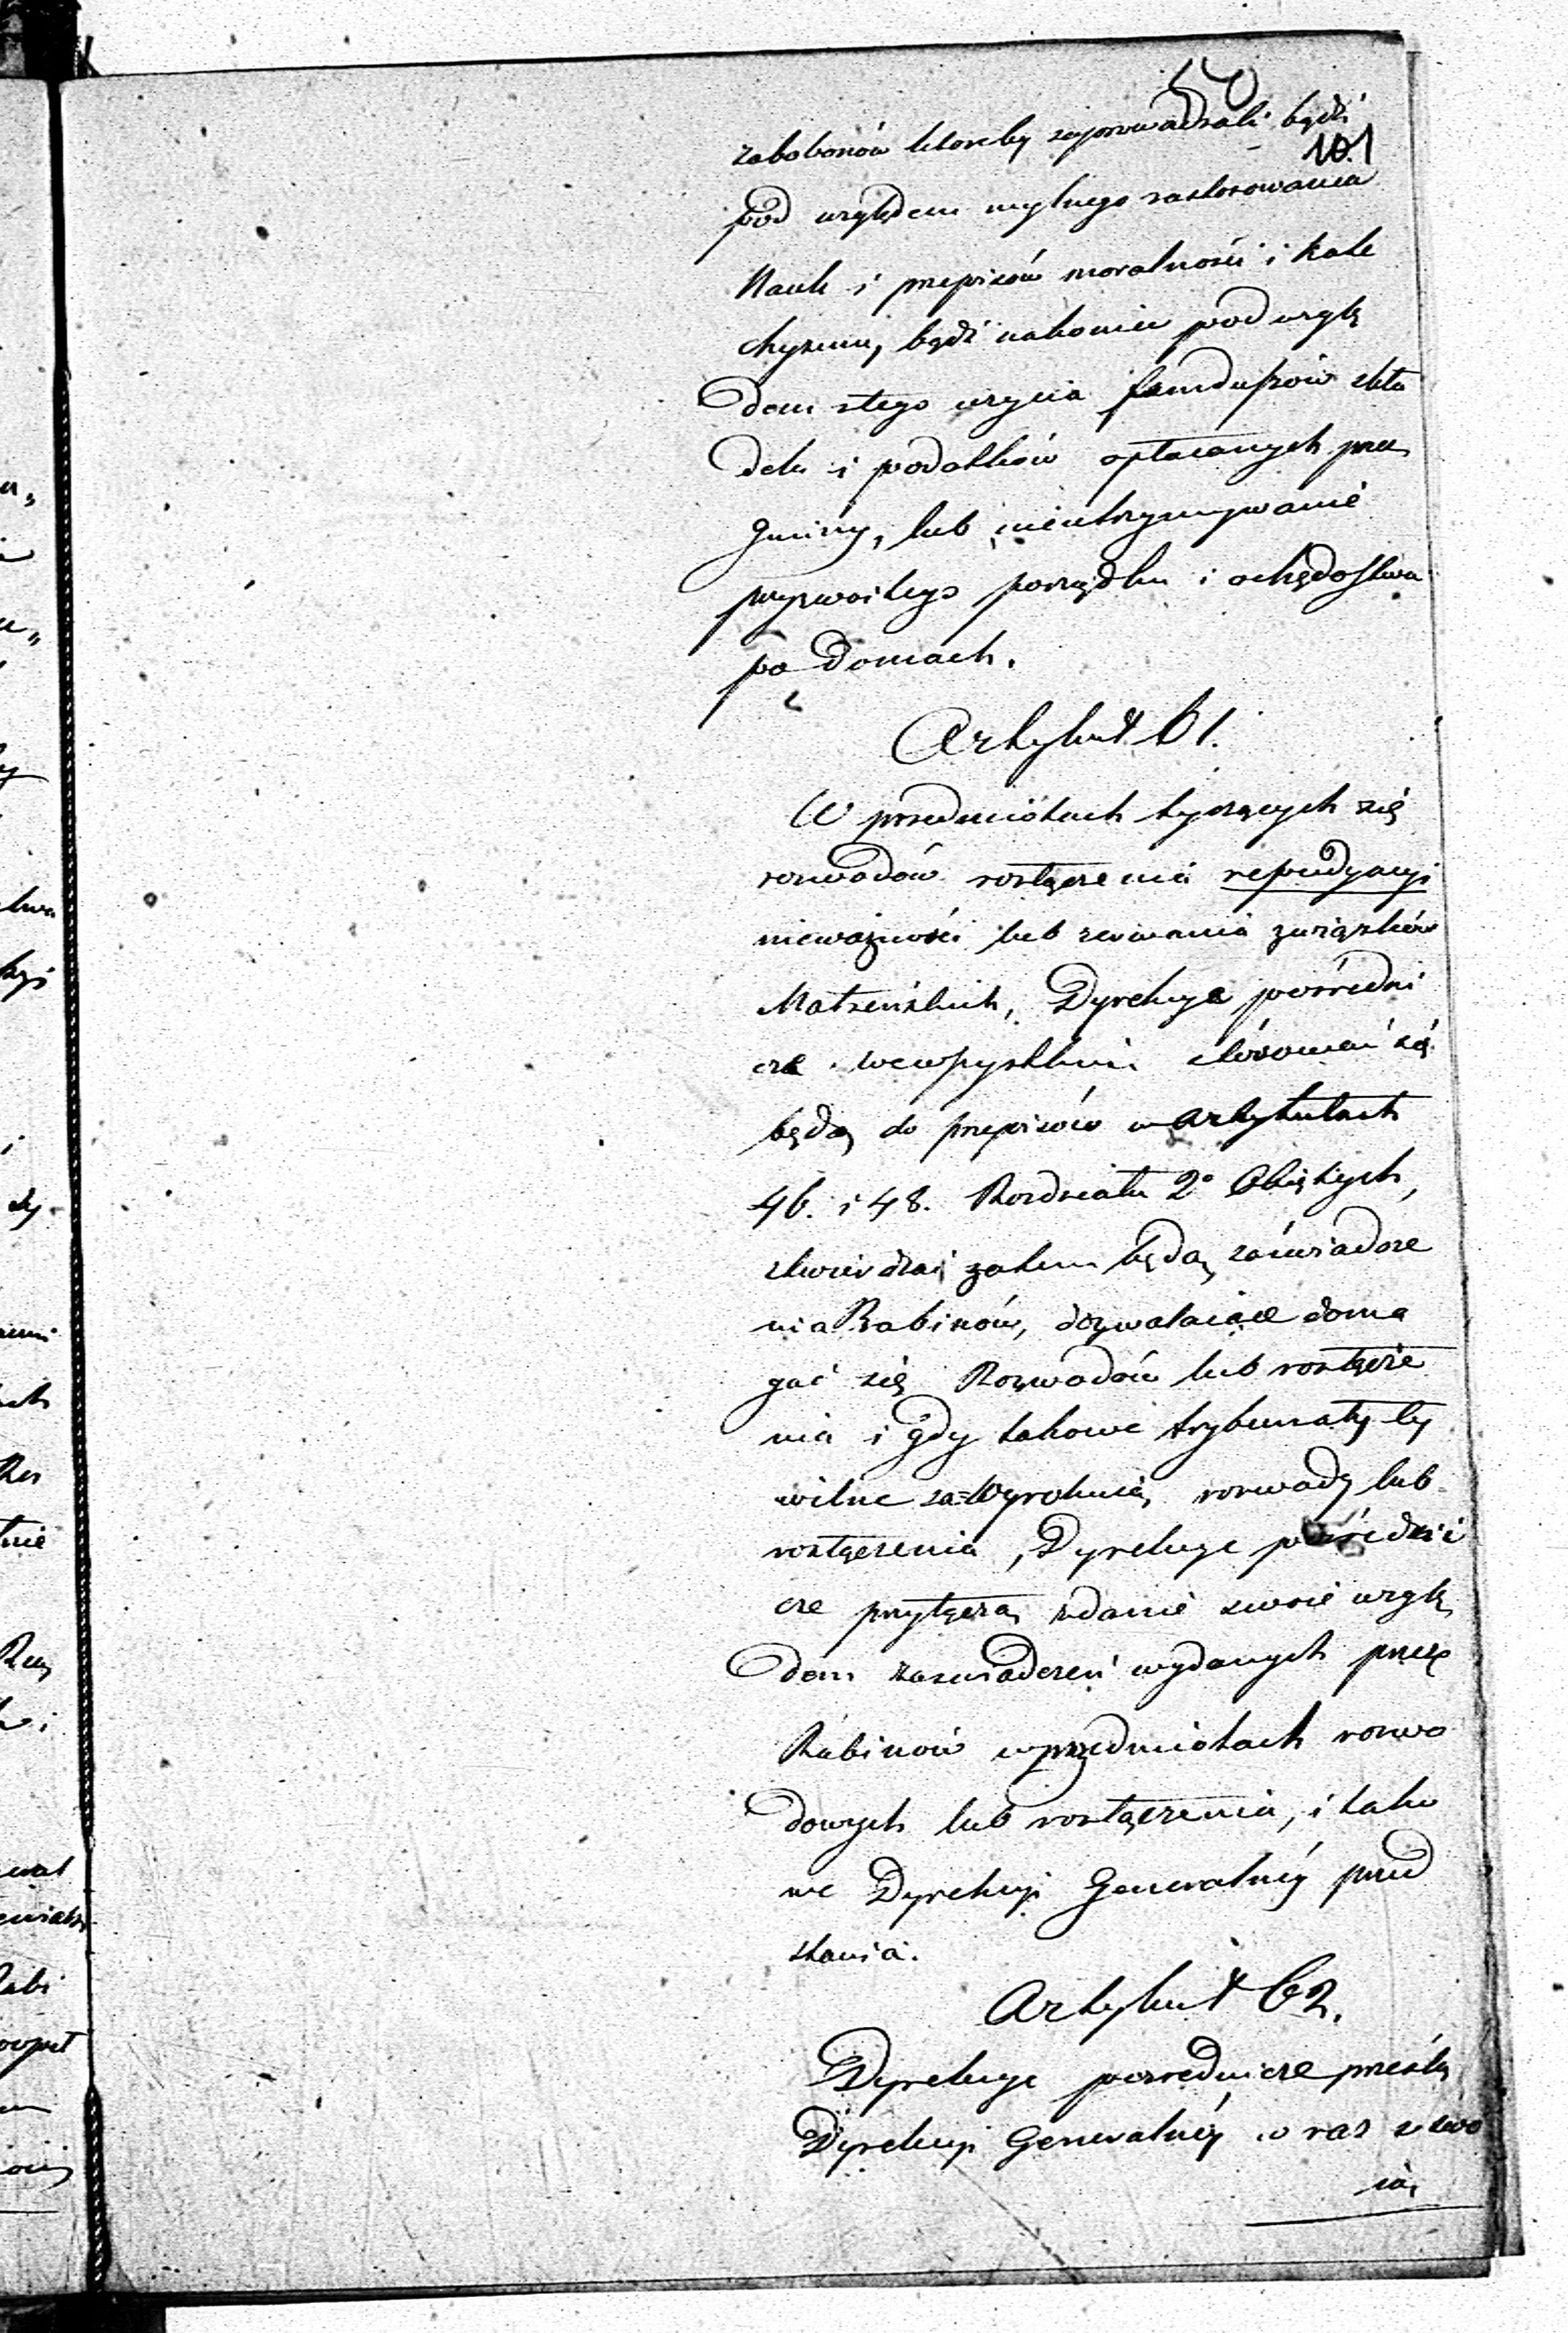 50
zabobonów któreby zaprowadzali bądź
101
pod względem mylnego zastosowania
Nauk i przepisów moralności i Kate
chyzmu, bądź nakoniec pod wzglę
dem złego użycia funduszów skła
dek i podatków opłacanych przez
Gminy, lub nieutrzymywanie
przyzwoitego porządku i ochędostwa
po domach.
Artykuł 61.
W przedmiotach tyczących się
rozwodów rozłączenia repudyacyi
nieważności lub zerwania związków
Małżeńskich, Dyrekcye pośredni
cze wewszystkiem stósować się
będą do przepisów w Artykułach
46. i 48. Rozdziału 2º Objętych,
stwierdzać zatem będą zaświadcze
nia Rabinów, dozwalaiące doma
gać się Rozwodów lub rozłącze
nia i gdy takowe trybunały Cy
wilne za=Wyrokuią rozwody lub
rozłączenia, Dyrekcye pośredni
cze przyłączą zdanie swoie wzglę
dem zaświadczeń wydanych przez
Rabinów w przedmiotach rozwo
dowych lub rozłączenia, i tako
we Dyrekcyi Generalnéy przed
stawią.
Artykuł 62.
Dyrekcye pośrednicze prześlą
Dyrekcyi Generalnéy w raz z swo
ią